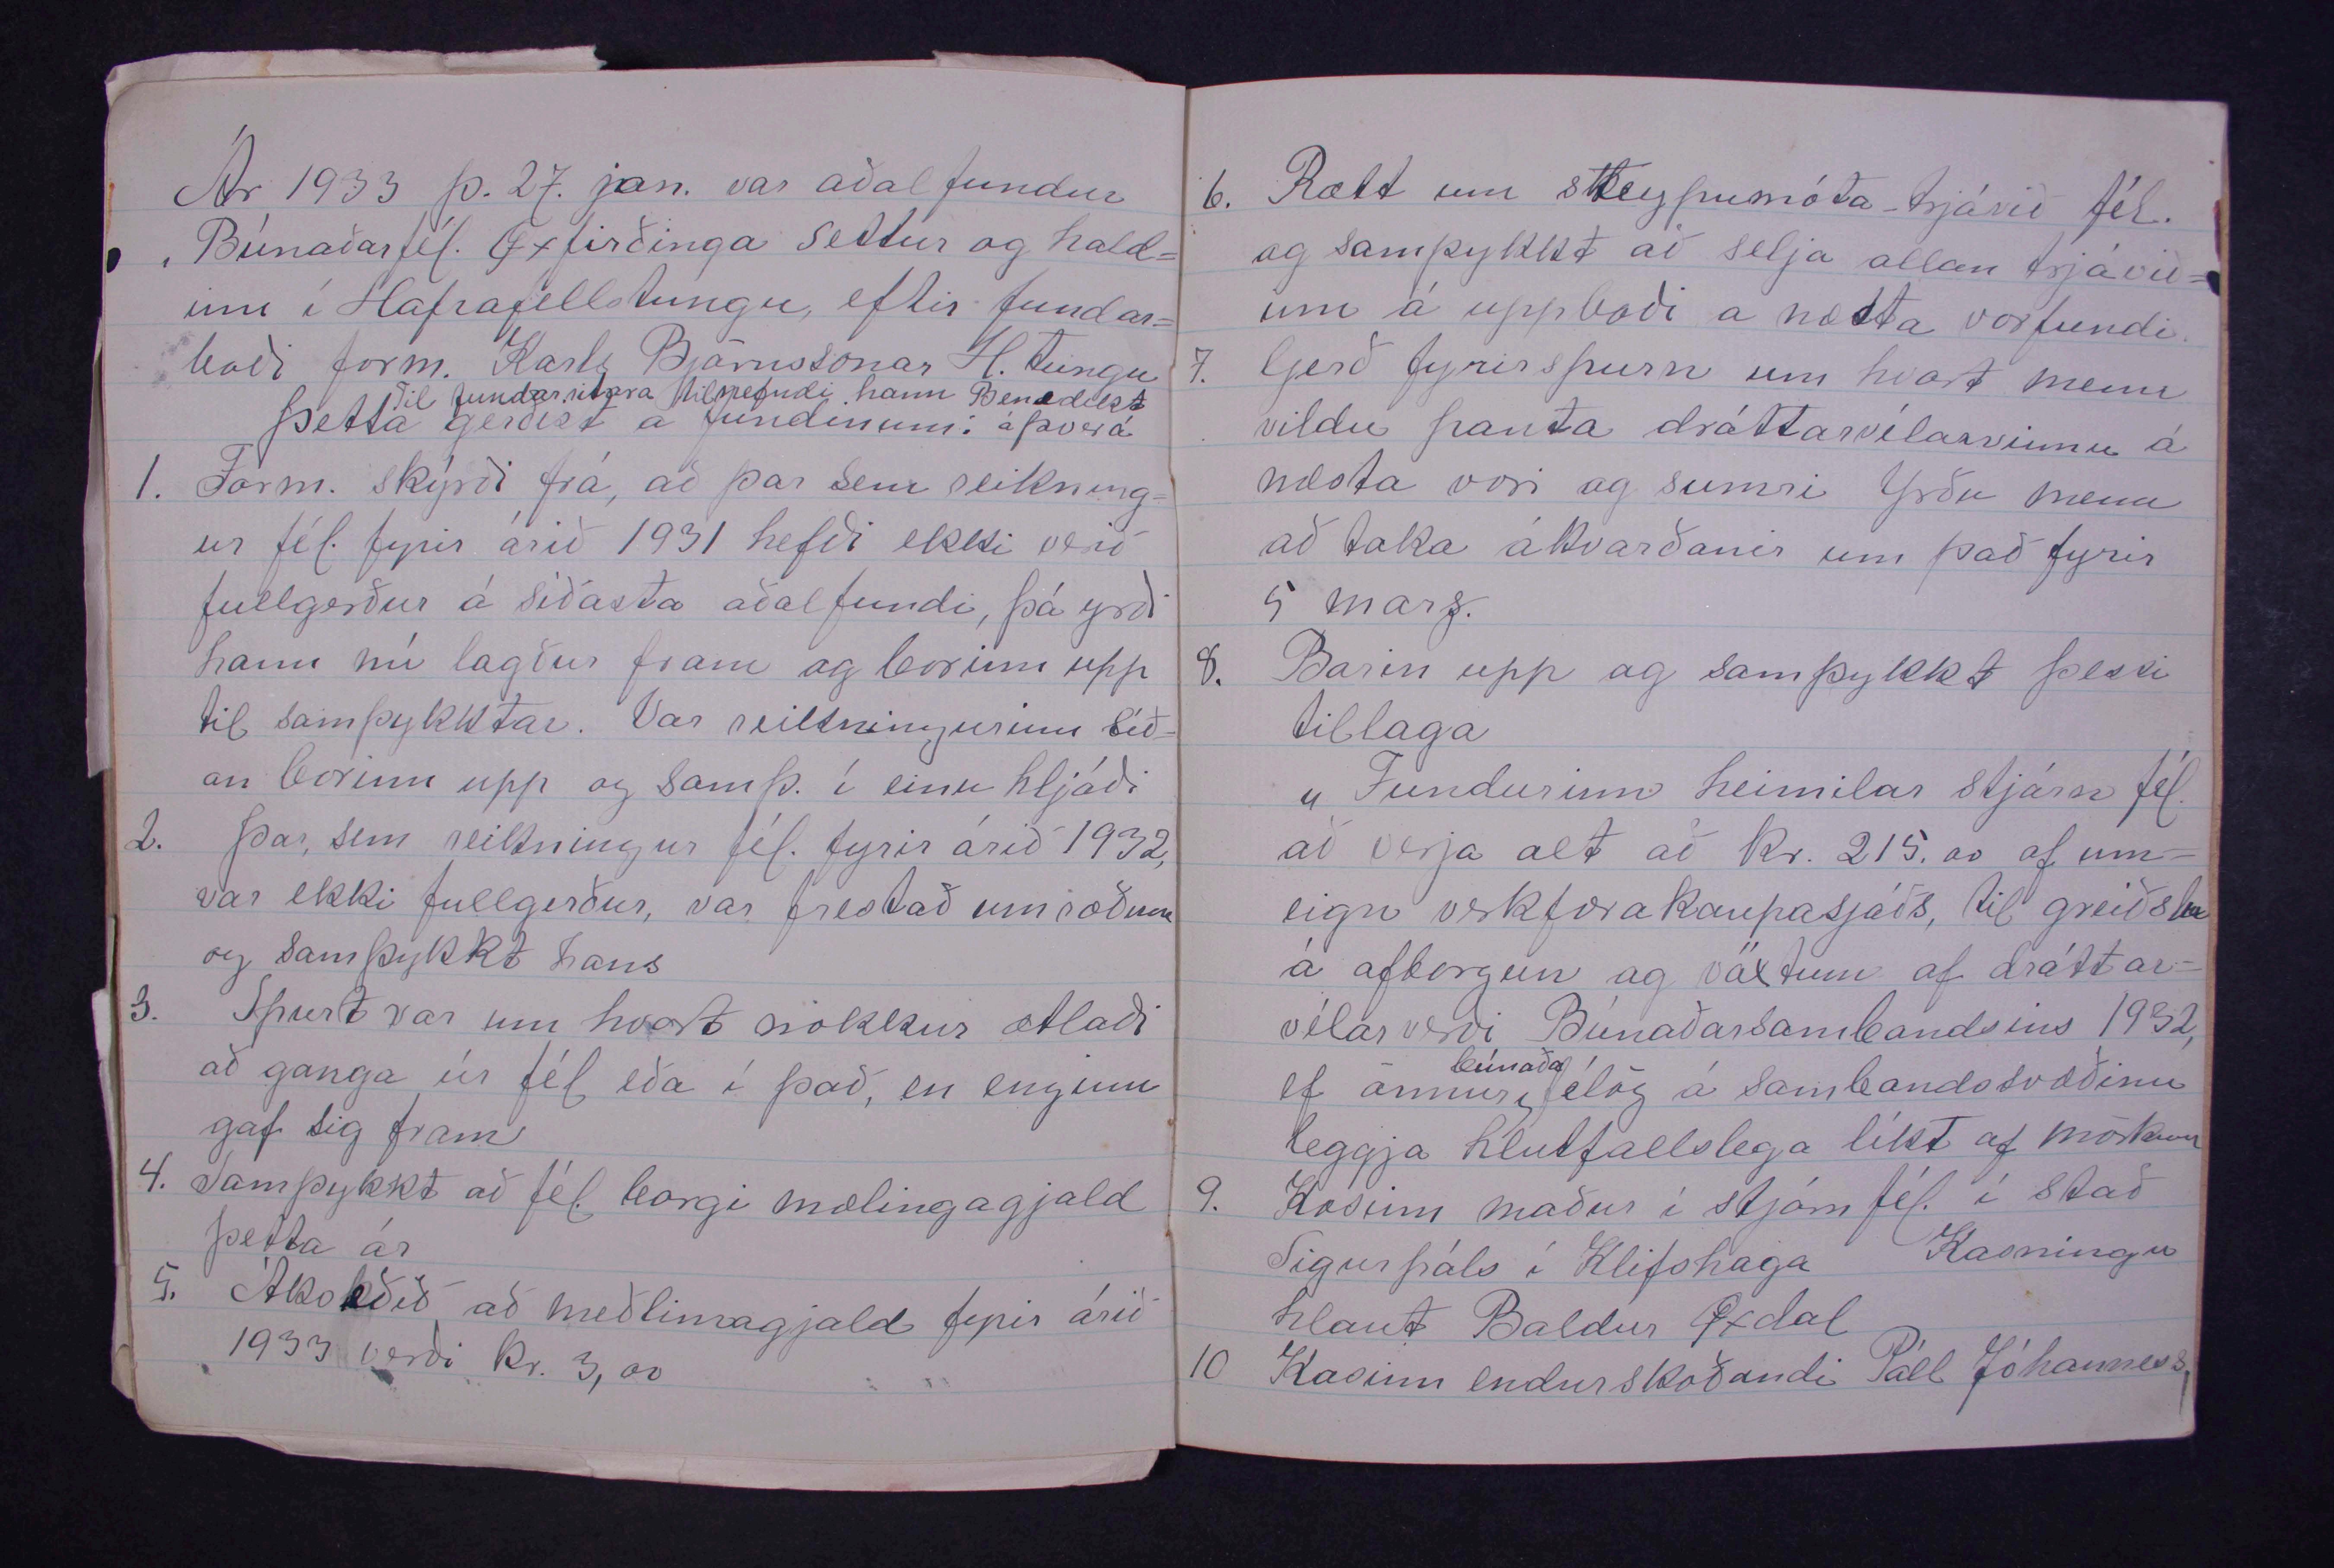 Ár 1933 þ. 27. jan. var aðalfundur
Búnaðarfél. Öxfirðinga settur og hald=
inn í Hafrafellstungu, eftir fundar=
boði form. Karls Björnssonar H.tungu
Til fundarritara tilnefndi hann Benedikt
Þetta gerðist á fundinum: á Þverá
1. Form. skýrði frá, að þar sem reikning=
ur fél. fyrir árið 1931 hefði ekki verið
fullgerður á síðasta aðalfundi, þá yrði
hann nú lagður fram og borinn upp
til samþykktar. Var reikningurinn síð=
an borinn upp og samþ. í einu hljóði
2. Þar, sem reikningur fél. fyrir árið 1932,
var ekki fullgerður, var frestað umræðum
og samþykkt hans
3. Spurt var um hvort nokkur ætlaði
að ganga úr fél eða í það, en enginn
gaf sig fram
4. Samþykkt að fél. borgi mælingagjald
þetta ár
5. Ákveðið að meðlimagjald fyrir árið
1933 verði kr. 3,00
6. Rætt um steypumóta-trjávið fél.
og samþykkt að selja allan trjávið=
inn á uppboði a næsta vorfundi.
7. Gerð fyrirspurn um hvort menn
vildu panta dráttarvélarvinnu á
næsta vori og sumri Yrðu menn
að taka ákvarðanir um það fyrir
5 marz.
8. Borin upp og samþykkt þessi
tillaga
„ Fundurinn heimilar stjórn fél.
að verja alt að kr. 215.00 af inn=
eign verkfærakaupasjóðs, til greiðslu
á afborgun og vöxtum af dráttar=
vélarverði Búnaðarsambandsins 1932,
ef önnur búnaðafélög á sambandssvæðinu
leggja hlutfallslega líkt af mörkum
9. Kosinn maður í stjórn fél. í stað
Sigurpáls í Klifshaga Kosningu
hlaut Baldur Öxdal
10 Kosinn endurskoðandi Páll Jóhanness,